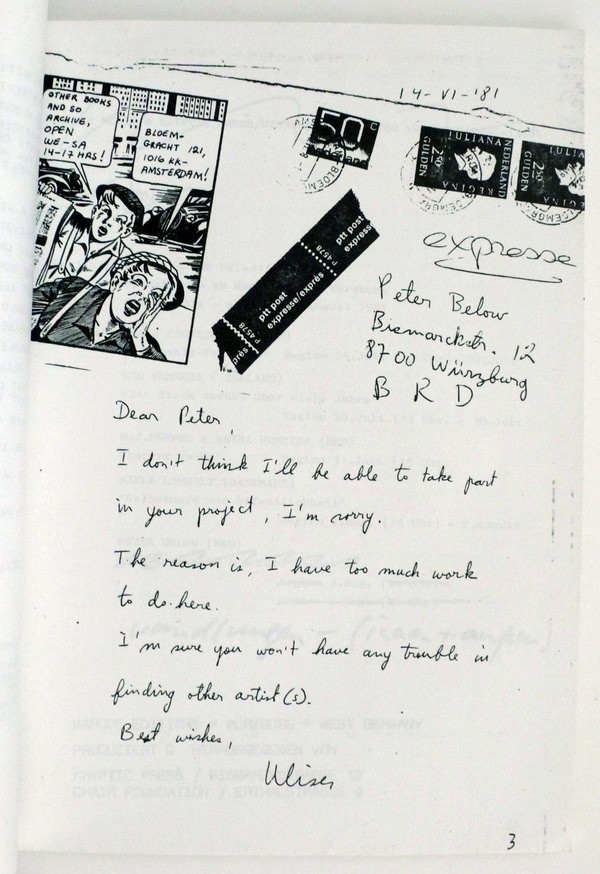 14-VI-'81
OTHER BOOKS
AND SO
ARCHIVE,
OPEN
WE-SA
14-17 HRS!
BLOEM-
GRACHT 121,
1016 KK-
AMSTERDAM!
50 c
NEDERLAND
JULIANA
REGINA
2.50
GULDEN
JULIANA
REGINA
2.50
GULDEN
ptt post
expresse
P 4578
ptt post
expresse/exprès
P 4578
près
expresse
Peter Below
Bismarckstr. 12
8700 Würzburg
BRD
Dear Peter,
I don't think I'll be able to take part
in your project, I'm sorry.
The reason is, I have too much work
to do here.
I'm sure you won't have any trouble in
finding other artist(s).
Best wishes,
Ulises
WEST GERMANY
3